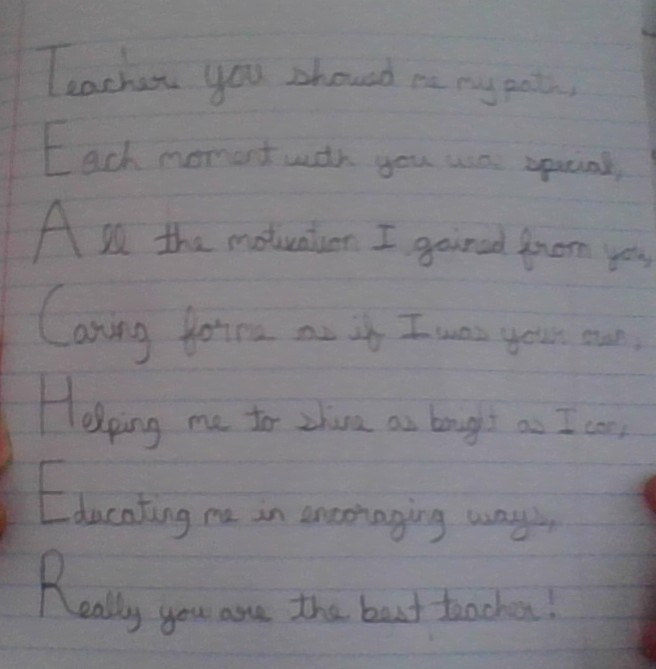 Teacher you showed me my path,
Each moment with you was special,
All the motivation I gained from you,
Caring for me as if I was your own,
Helping me to shine as bright as I can,
Educating me in encoraging ways,
Really you are the best teacher!